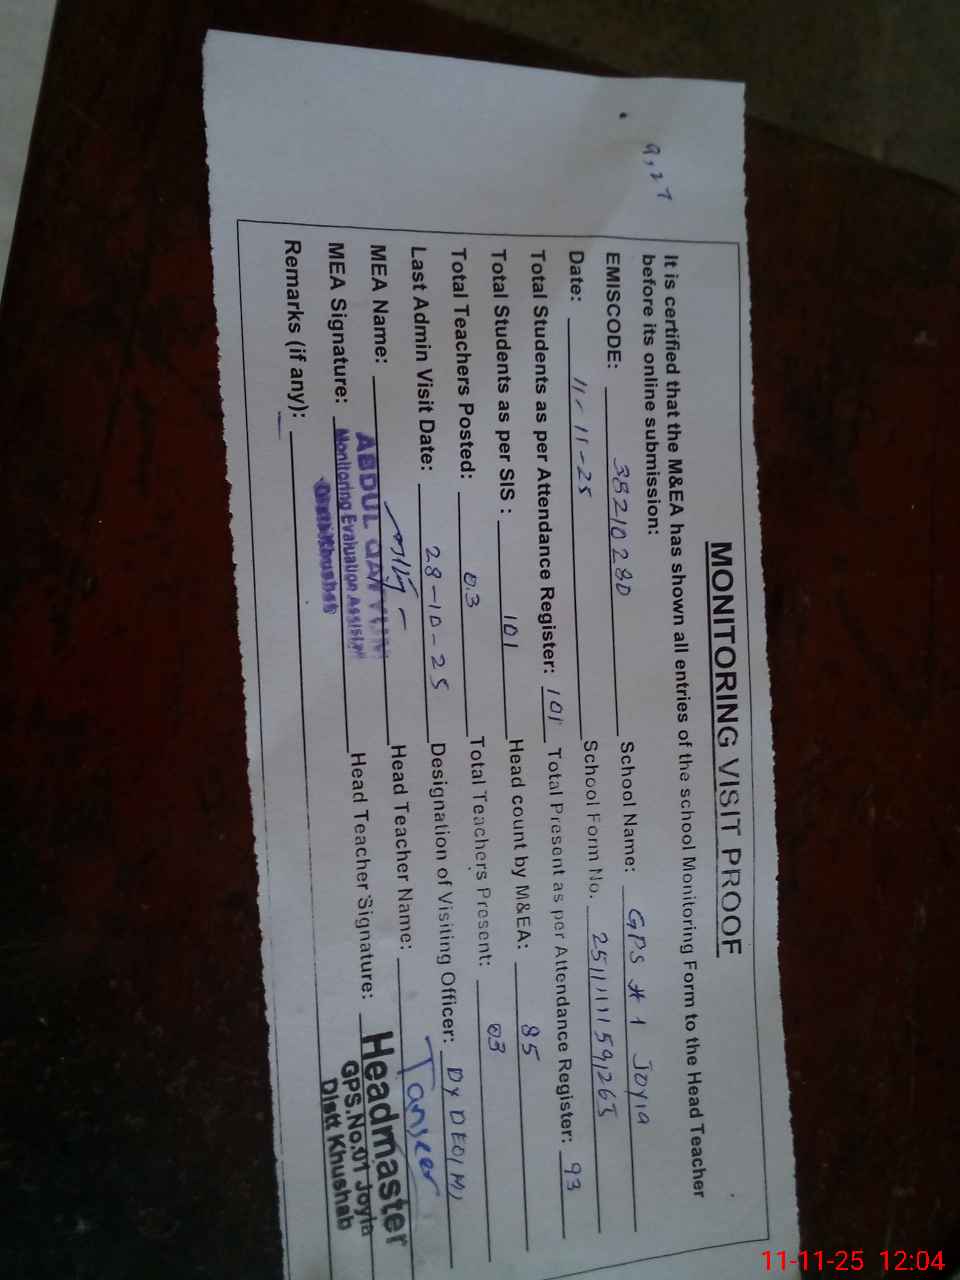 9,27
MONITORING VISIT PROOF
It is certified that the M&EA has shown all entries of the school Monitoring Form to the Head Teacher
before its online submission:
EMISCODE: 38210280 School Name: GPS # 1 Joyia
Date: 11-11-25 School Form No. 2511111159,265
Total Students as per Attendance Register: 101 Total Present as per Attendance Register: 93
Total Students as per SIS : 101 Head count by M&EA: 85
Total Teachers Posted: 03 Total Teachers Present: 03
Last Admin Visit Date: 28-10-25 Designation of Visiting Officer: DY DEO(M)
MEA Name: Head Teacher Name: Tanseer
ABDUL QAYYUM
MEA Signature: Head Teacher Signature: Headmaster
Monitoring Evaluation Assistant GPS.No.01 Joyia
Distt Khushab Distt Khushab
Remarks (if any):
11-11-25 12:04